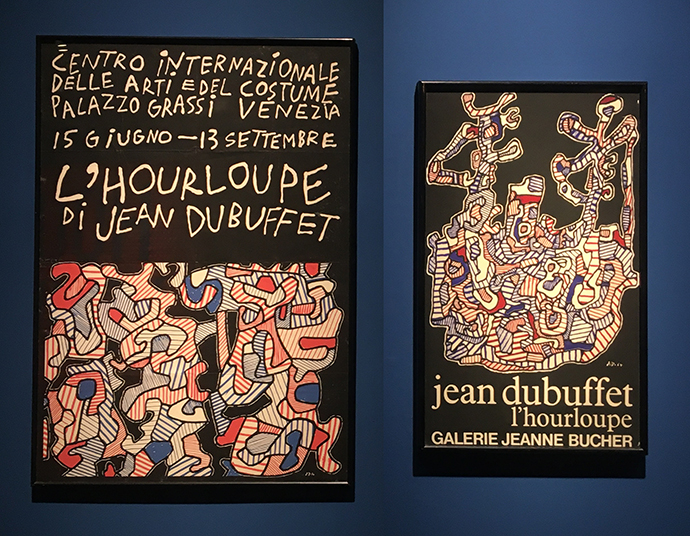 CENTRO INTERNAZIONALE
DELLE ARTI E DEL COSTUME
PALAZZO GRASSI VENEZIA
15 GIUGNO — 13 SETTEMBRE
L'HOURLOUPE
Di JEAN DUBUFFET
jean dubuffet
l'hourloupe
GALERIE JEANNE BUCHER